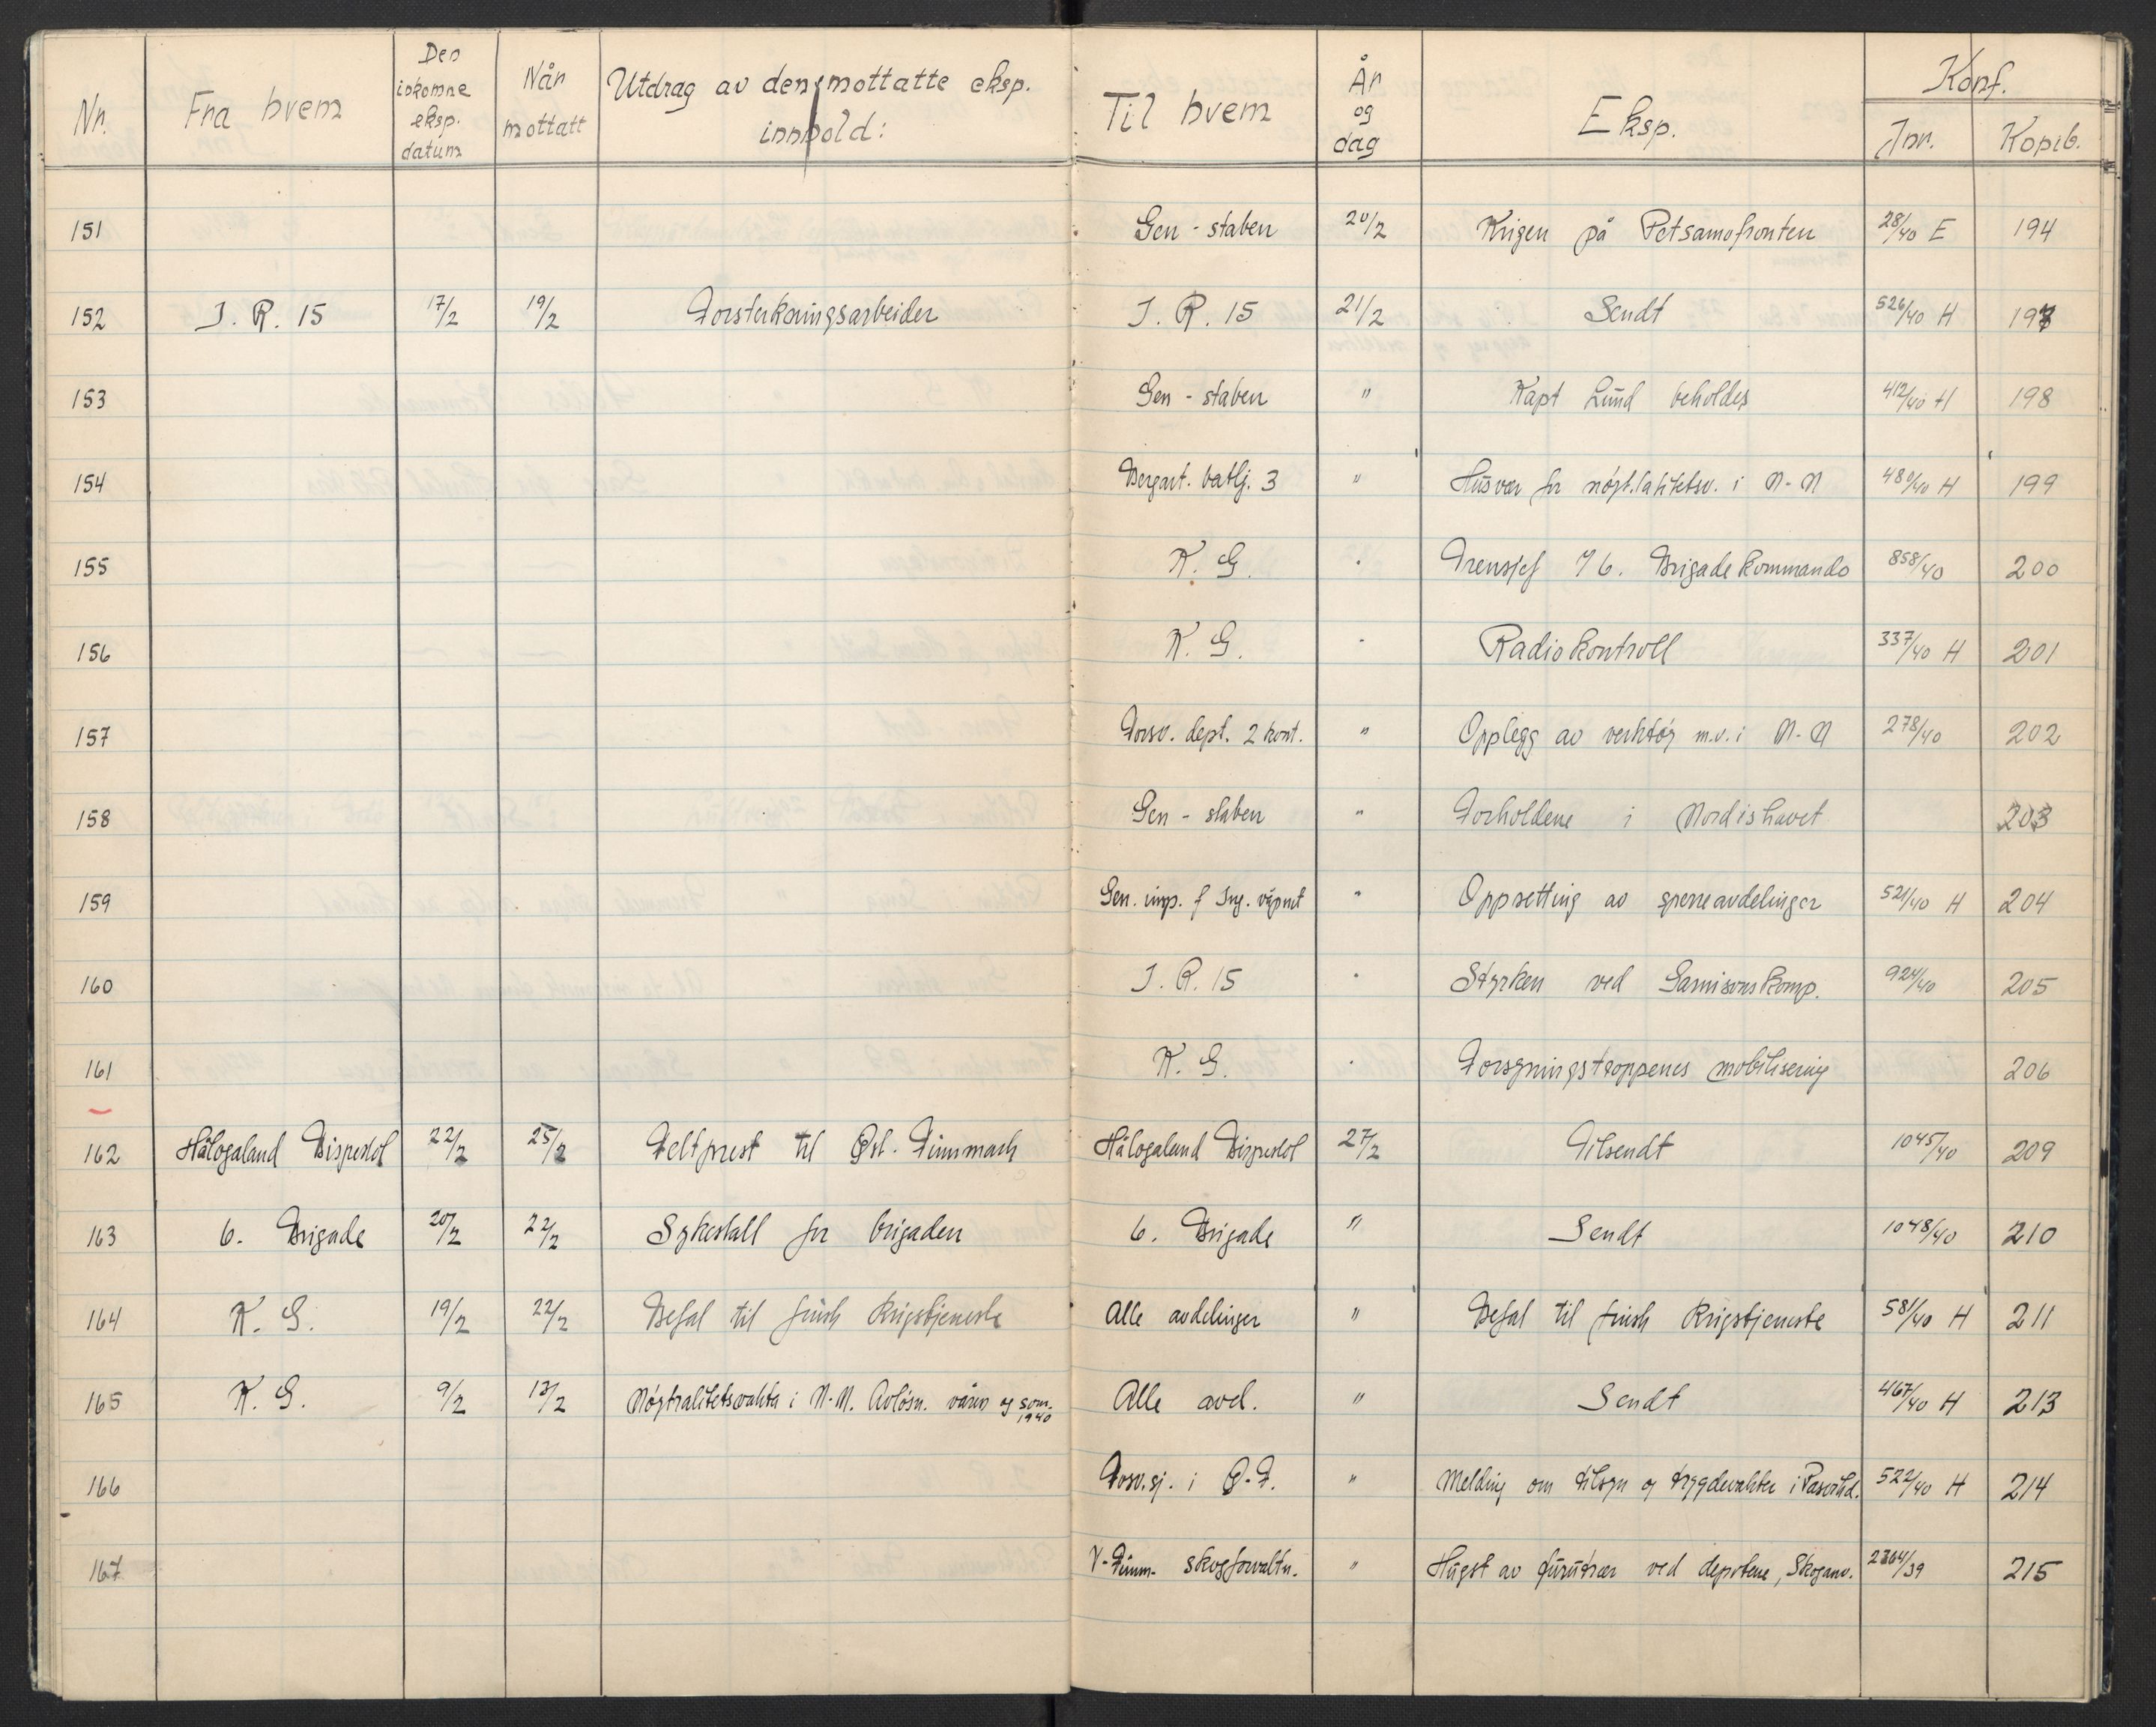 Nr. Fra hvem Den inkomne eksp. datum Når mottatt Utdrag av den mottatte eksp. innhold: Til hvem År og dag Eksp. Konf. Jnr. Kopib.
151 Gen - staben 20/2 Krigen på Petsamofronten 28/40 E 194
152 I. R. 15 17/2 19/2 Forsterkningsarbeider I. R. 15 21/2 Sendt 526/40 H 197
153 Gen - staben " Kapt Lund beholdes 412/40 H 198
154 Bergart. batlj. 3 " Husvær for nøytralitetsv. i N-N 480/40 H 199
155 K. G. " Trensjef v/ 6. Brigadekommando 858/40 200
156 K. G. " Radiokontroll 337/40 H 201
157 Forsv. dept. 2 kont. " Opplegg av verktøy m.v. i N-N 278/40 202
158 Gen - staben " Forholdene i Nordishavet 203
159 Gen. insp. f Ing. våpnet " Oppsetting av sperreavdelinger 521/40 H 204
160 I. R. 15 " Styrken ved Garnisonskomp. 924/40 205
161 K. G. " Forsyningstroppenes mobilisering 206
162 Hålogaland Bispestol 22/2 25/2 Feltprest til Øst-Finnmark Hålogaland Bispestol 27/2 Tilsendt 1045/40 209
163 6. Brigade 20/2 22/2 Sykestall for brigaden 6. Brigade " Sendt 1048/40 210
164 K. G. 19/2 22/2 Befal til finsk krigstjeneste Alle avdelinger " Befal til finsk krigstjeneste 581/40 H 211
165 K. G. 9/2 13/2 Nøytralitetsvakta i N-N. Avløsn. våren og som. 1940 Alle avd. " Sendt 467/40 H 213
166 Forsv.sj. i Ø-F. " Melding om tilsyn og bygdevakter i 522/40 H 214
167 V-Finnm- skogforvaltn. " Hugst av furutrær ved depotene, Skoganv. 2364/39 215